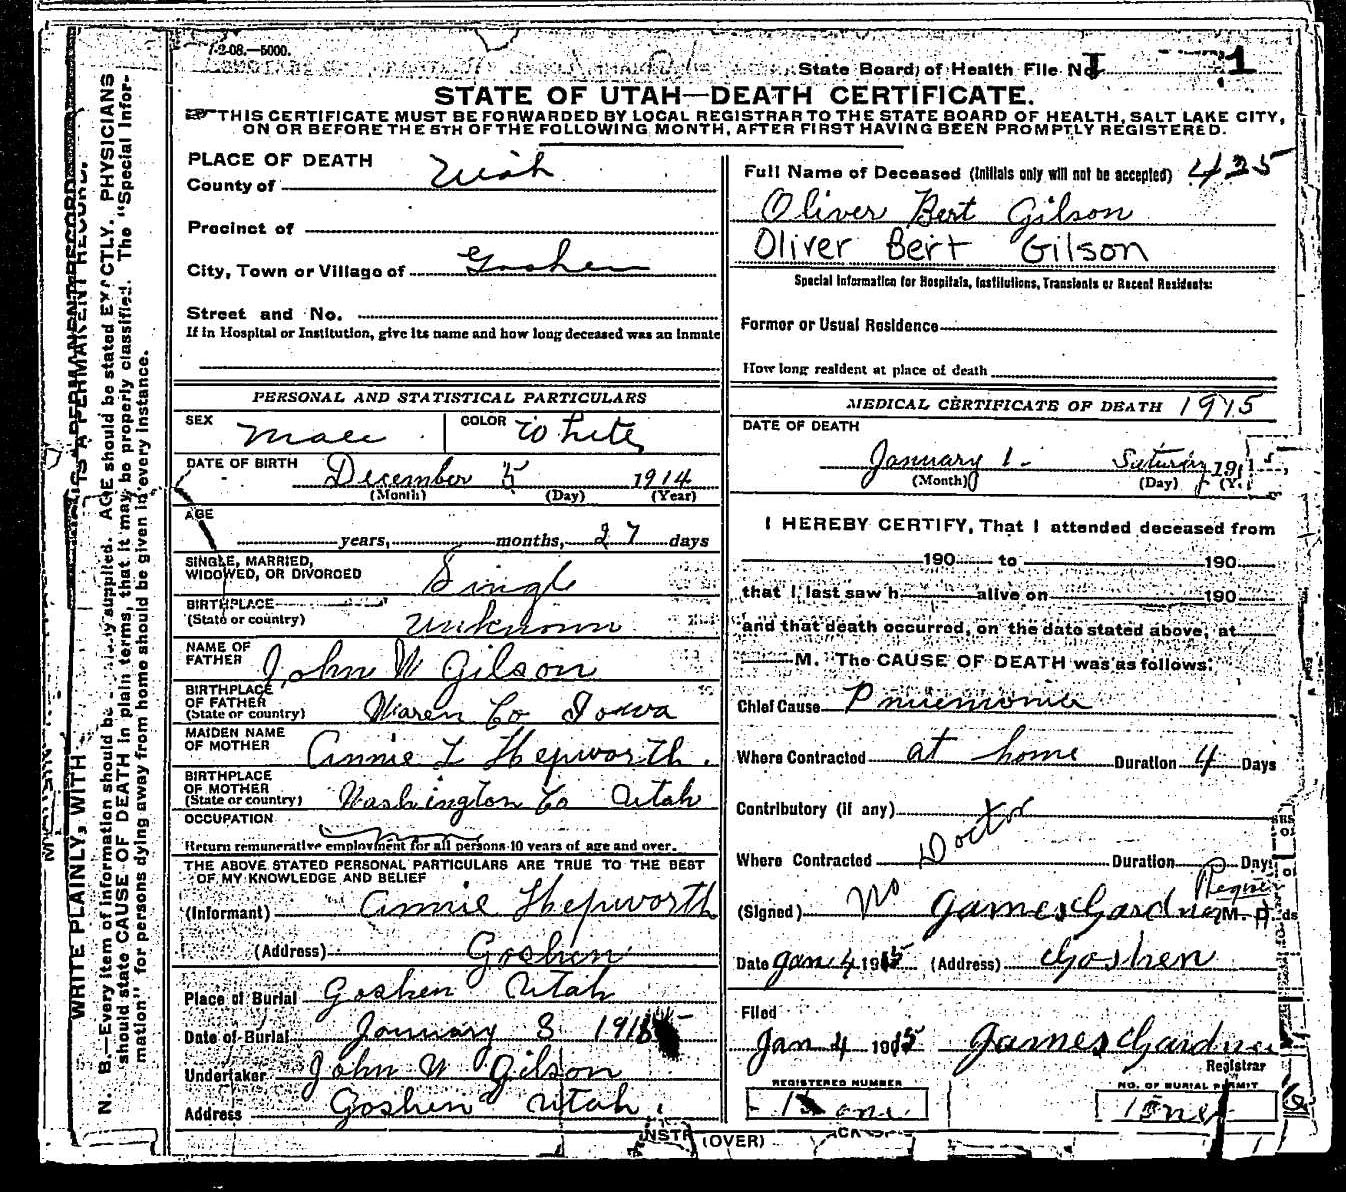 7-2-08.—5000.
State Board of Health File No. 1
STATE OF UTAH—DEATH CERTIFICATE.
THIS CERTIFICATE MUST BE FORWARDED BY LOCAL REGISTRAR TO THE STATE BOARD OF HEALTH, SALT LAKE CITY,
ON OR BEFORE THE 5TH OF THE FOLLOWING MONTH, AFTER FIRST HAVING BEEN PROMPTLY REGISTERED.
PLACE OF DEATH
County of Utah
Precinct of
City, Town or Village of Goshen
Street and No.
If in Hospital or Institution, give its name and how long deceased was an inmate
PERSONAL AND STATISTICAL PARTICULARS
SEX Male COLOR White
DATE OF BIRTH December 5 1914
(Month) (Day) (Year)
AGE
years, months, 27 days
SINGLE, MARRIED,
WIDOWED, OR DIVORCED Single
BIRTHPLACE
(State or country) Unknown
NAME OF
FATHER John W Gilson
BIRTHPLACE
OF FATHER
(State or country) Waren Co Iowa
MAIDEN NAME
OF MOTHER Annie L Hepworth.
BIRTHPLACE
OF MOTHER
(State or country) Washington Co Utah
OCCUPATION
Return remunerative employment for all persons 10 years of age and over.
THE ABOVE STATED PERSONAL PARTICULARS ARE TRUE TO THE BEST
OF MY KNOWLEDGE AND BELIEF
(Informant) Annie Hepworth
(Address) Goshen
Place of Burial Goshen Utah
Date of Burial January 3 191
Undertaker John W Gilson
Address Goshen Utah.
Full Name of Deceased (Initials only will not be accepted) 425
Oliver Bert Gilson
Oliver Bert Gilson
Special Information for Hospitals, Institutions, Transients or Recent Residents:
Former or Usual Residence
How long resident at place of death
MEDICAL CERTIFICATE OF DEATH 1915
DATE OF DEATH
January 1. Saturday 191
(Month) (Day)
I HEREBY CERTIFY, That I attended deceased from
190 to 190
that I last saw h alive on 190
and that death occurred, on the date stated above, at
M. The CAUSE OF DEATH was as follows:
Chief Cause Pnuemonia
Where Contracted at home Duration 4 Days
Contributory (if any)
Where Contracted Doctor Duration Days
(Signed) No James Gardner M. D.
Date Jan 4 1915 (Address) Goshen
Filed
Jan 4 1915 James Gardner
Registrar
REGISTERED NUMBER
1 one
NO. OF BURIAL PERMIT
1 one
(OVER)
WRITE PLAINLY, WITH
THIS IS A PERMANENT RECORD.
N. B.—Every item of information should be supplied. AGE should be stated EXACTLY. PHYSICIANS
should state CAUSE OF DEATH in plain terms, that it may be properly classified. The "Special Infor-
mation" for persons dying away from home should be given in every instance.